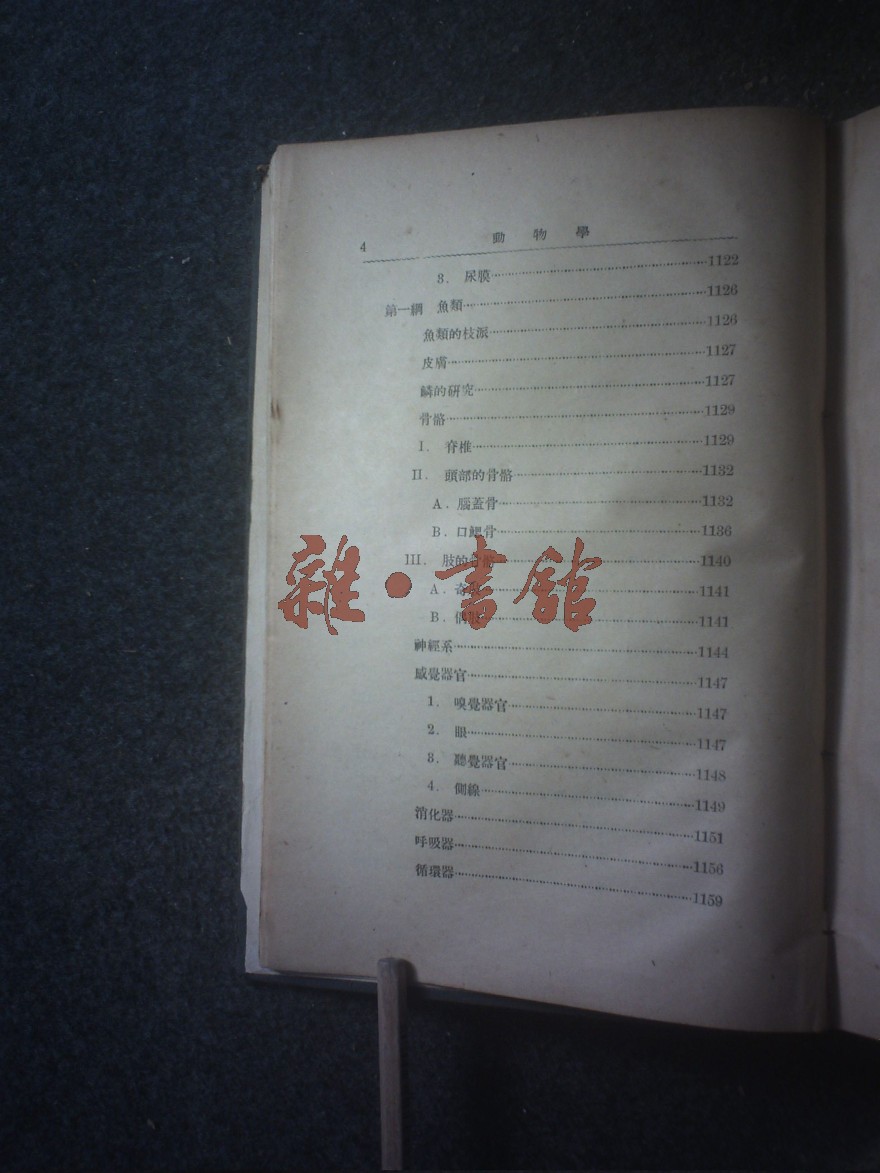 4 動物學
3. 尿膜 1122
第一綱 魚類 1126
魚類的枝派 1126
皮膚 1127
鱗的研究 1127
骨骼 1129
I. 脊椎 1129
II. 頭部的骨骼 1132
A. 腦蓋骨 1132
B. 口鰓骨 1136
III. 肢的骨骼 1140
A. 奇 1141
B. 偶 1141
雜·書館
神經系 1144
感覺器官 1147
1. 嗅覺器官 1147
2. 眼 1147
3. 聽覺器官 1148
4. 側線 1149
消化器 1151
呼吸器 1156
循環器 1159